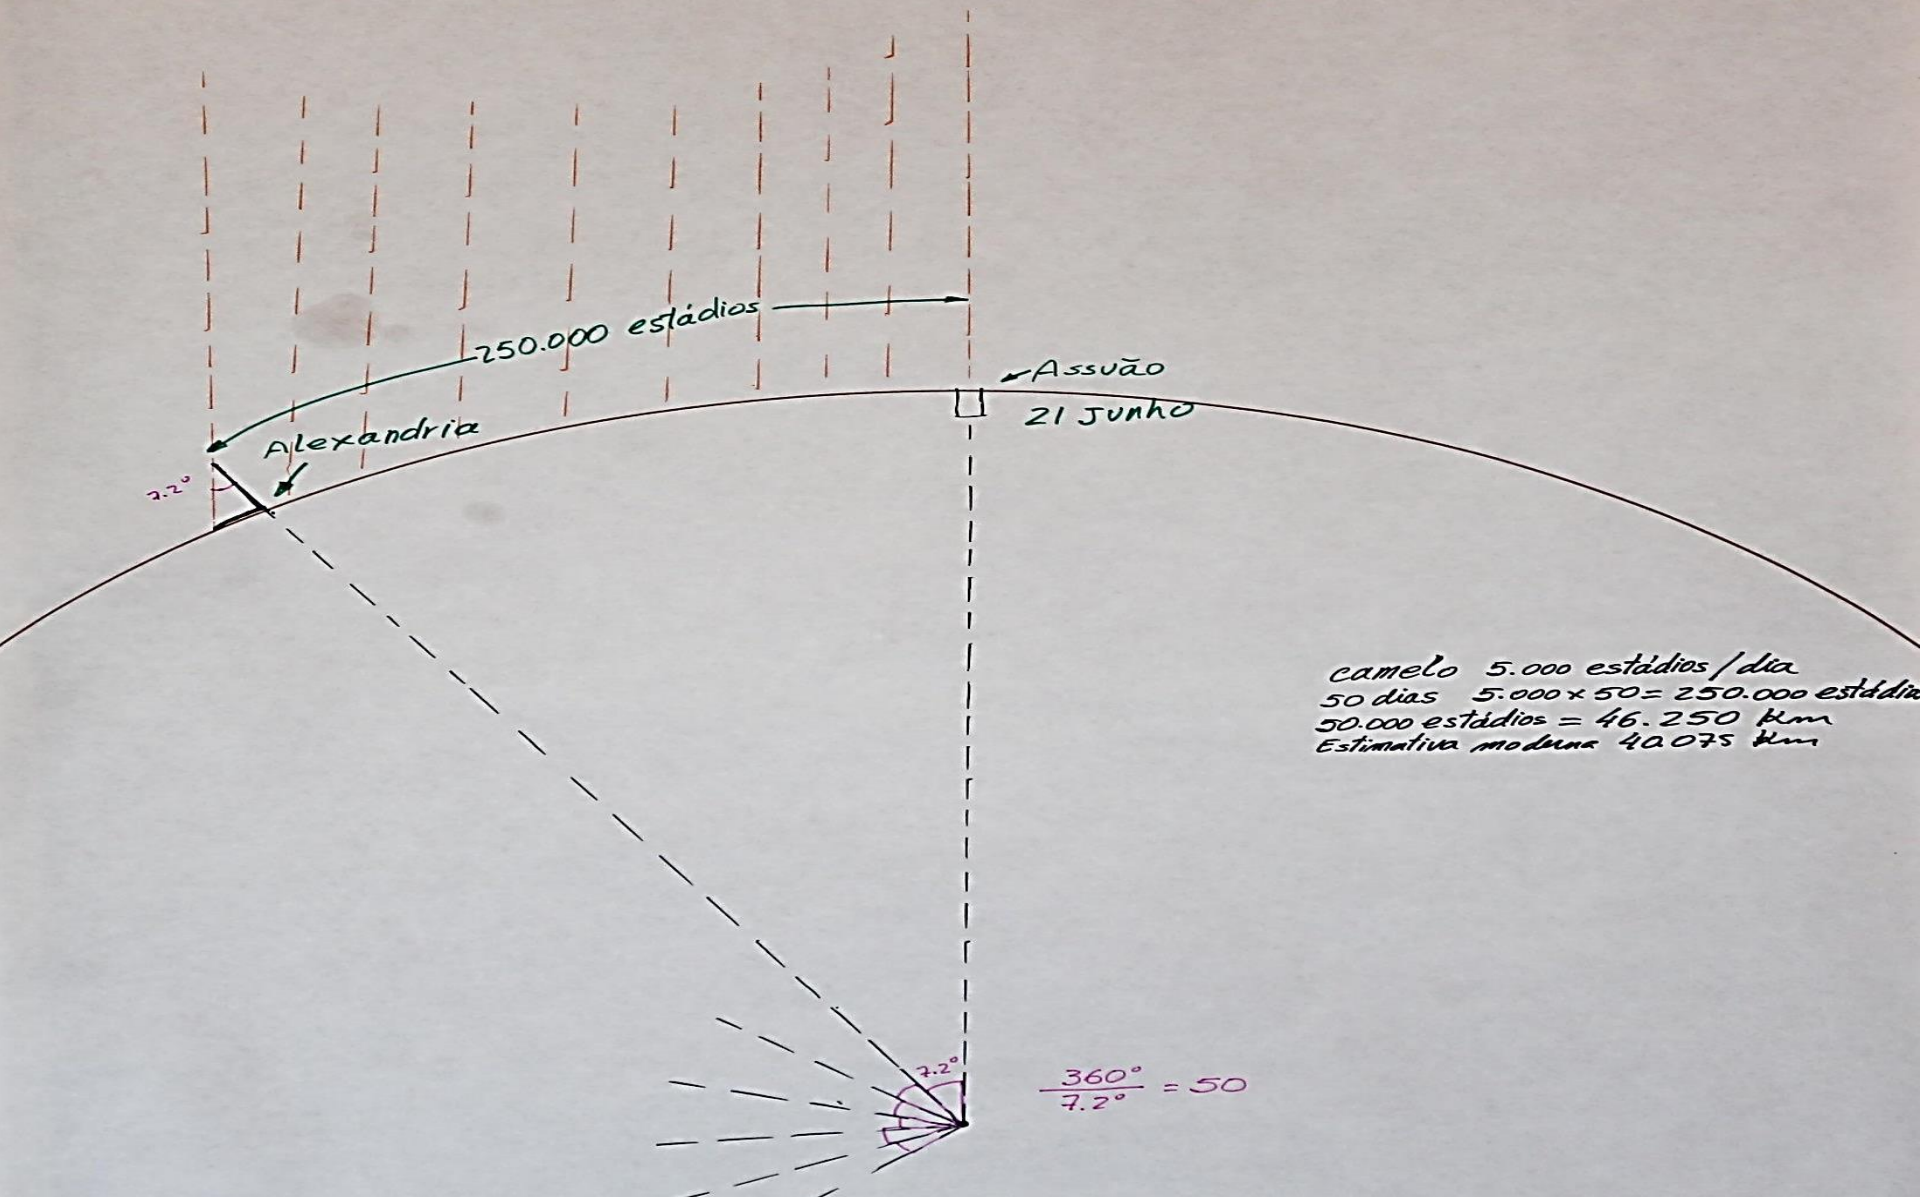 250.000 estádios
Assuão
21 Junho
Alexandria
7.2°
camelo 5.000 estádios/dia
50 dias 5.000 x 50 = 250.000 estádio
50.000 estádios = 46.250 km
Estimativa moderna 40.075 km
7.2°
360°
7.2°
= 50